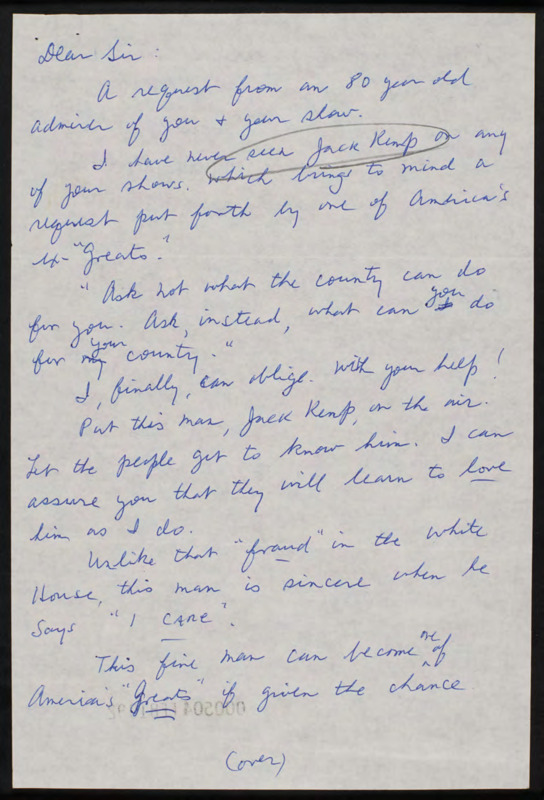 Dear Sir:
A request from an 80 year old
admirer of you & your show.
I have never seen Jack Kemp on any
of your shows. which brings to mind a
request put forth by one of America's
ex-"Greats."
"Ask not what the county can do
for you. Ask, instead, what can you do
for your county."
I, finally, can oblige. With your help!
Put this man, Jack Kemp, on the air.
Let the people get to know him. I can
assure you that they will learn to love
him as I do.
Unlike that "fraud" in the White
House, this man is sincere when he
says "I CARE".
This fine man can become one of
America's "Greats" if given the chance
(over)